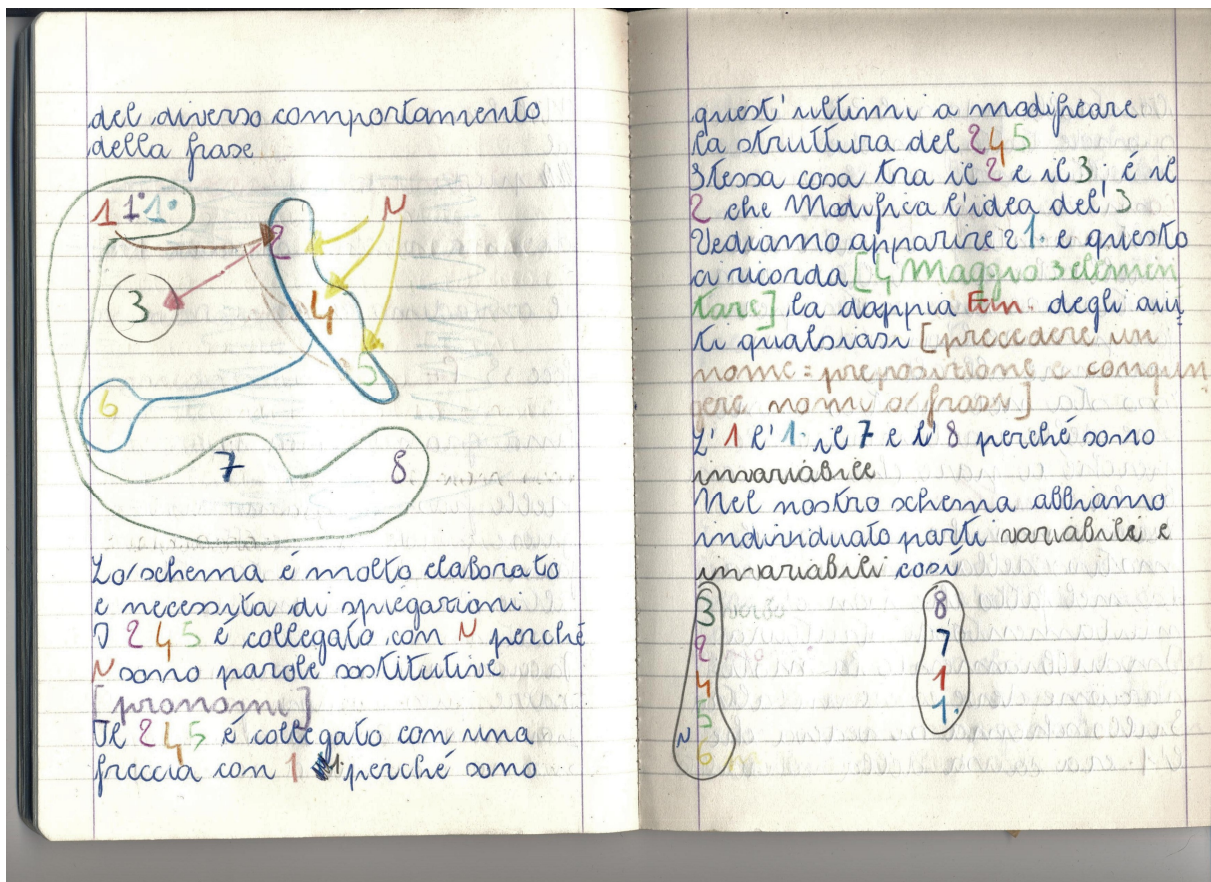 del diverso comportamento
della frase
1 1· 1·
N
2
3
4
5
6
7
8
Lo schema é molto elaborato
e necessita di spiegazioni
I 2 4 5 é collegato con N perché
N sono parole sostitutive
[pronomi]
Il 2 4 5 é collegato con una
freccia con 1 1· perché sono
quest'ultimi a modificare
la struttura del 2 4 5
Stessa cosa tra il 2 e il 3; é il
2 che Modifica l'idea del 3
Vediamo apparire 2 1· e questo
ci ricorda [4 Maggio 3 elemen
tare] la doppia Fun. degli aiu
ti qualsiasi [precedere un
nome = preposizione e congiun
gere nomi o/ frasi]
L'1 l'1· il 7 e l'8 perché sono
invariabile
Nel nostro schema abbiamo
individuato parti variabili e
invariabili cosí
3 8
2 7
4 1
5 1·
N 6